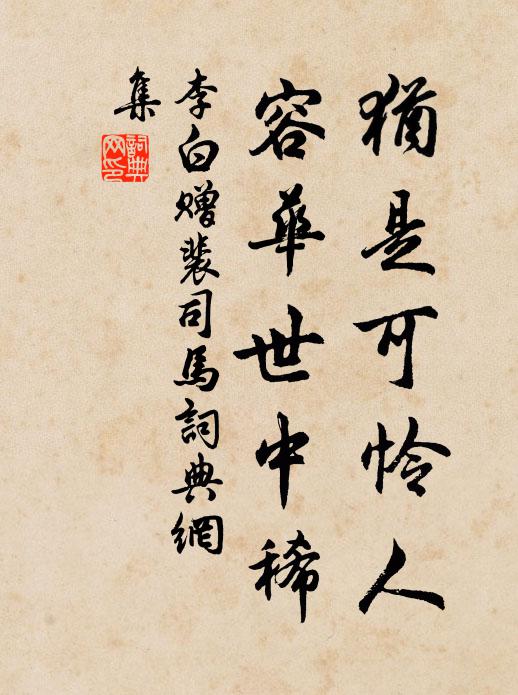 猶是可憐人
容華世中稀
李白赠裴司馬詞典網
集
詞典
网印